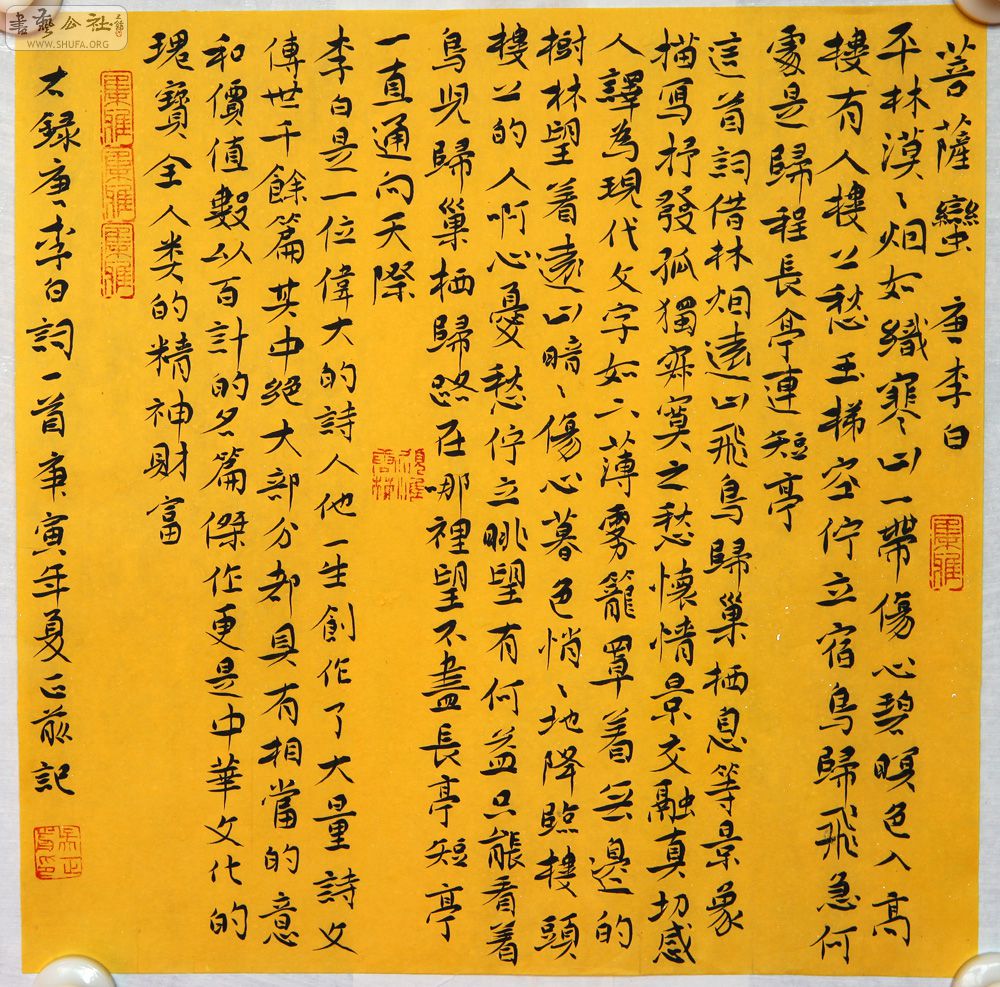 菩薩蠻 唐 李白
平林漠〻烟如織寒山一帶傷心碧暝色入高
樓有人樓上愁玉梯空佇立宿鳥歸飛急何
處是歸程長亭連短亭
這首詞借林烟遠山飛鳥歸巢栖息等景象
描寫抒發孤獨寂寞之愁懷情景交融真切感
人譯為現代文字如下薄雾籠罩着無邊的
樹林望着遠山暗〻傷心暮色悄〻地降臨樓頭
樓上的人啊心憂愁佇立眺望有何益只能看着
鳥児歸巢栖歸路在哪裡望不盡長亭短亭
一直通向天際
李白是一位偉大的詩人他一生創作了大量詩文
傳世千餘篇其中絕大部分都具有相當的意
和價值數以百計的名篇傑作更是中華文化的
瑰寶全人类的精神財富
右録唐李白詞一首庚寅年夏正斌記
書藝公社
WWW.SHUFA.ORG